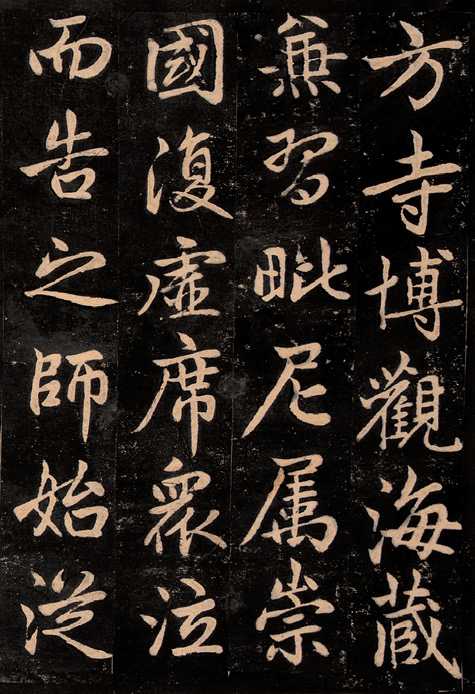 方寺博觀海藏
兼習毗尼属崇
國復虛席衆泣
而告之師始從